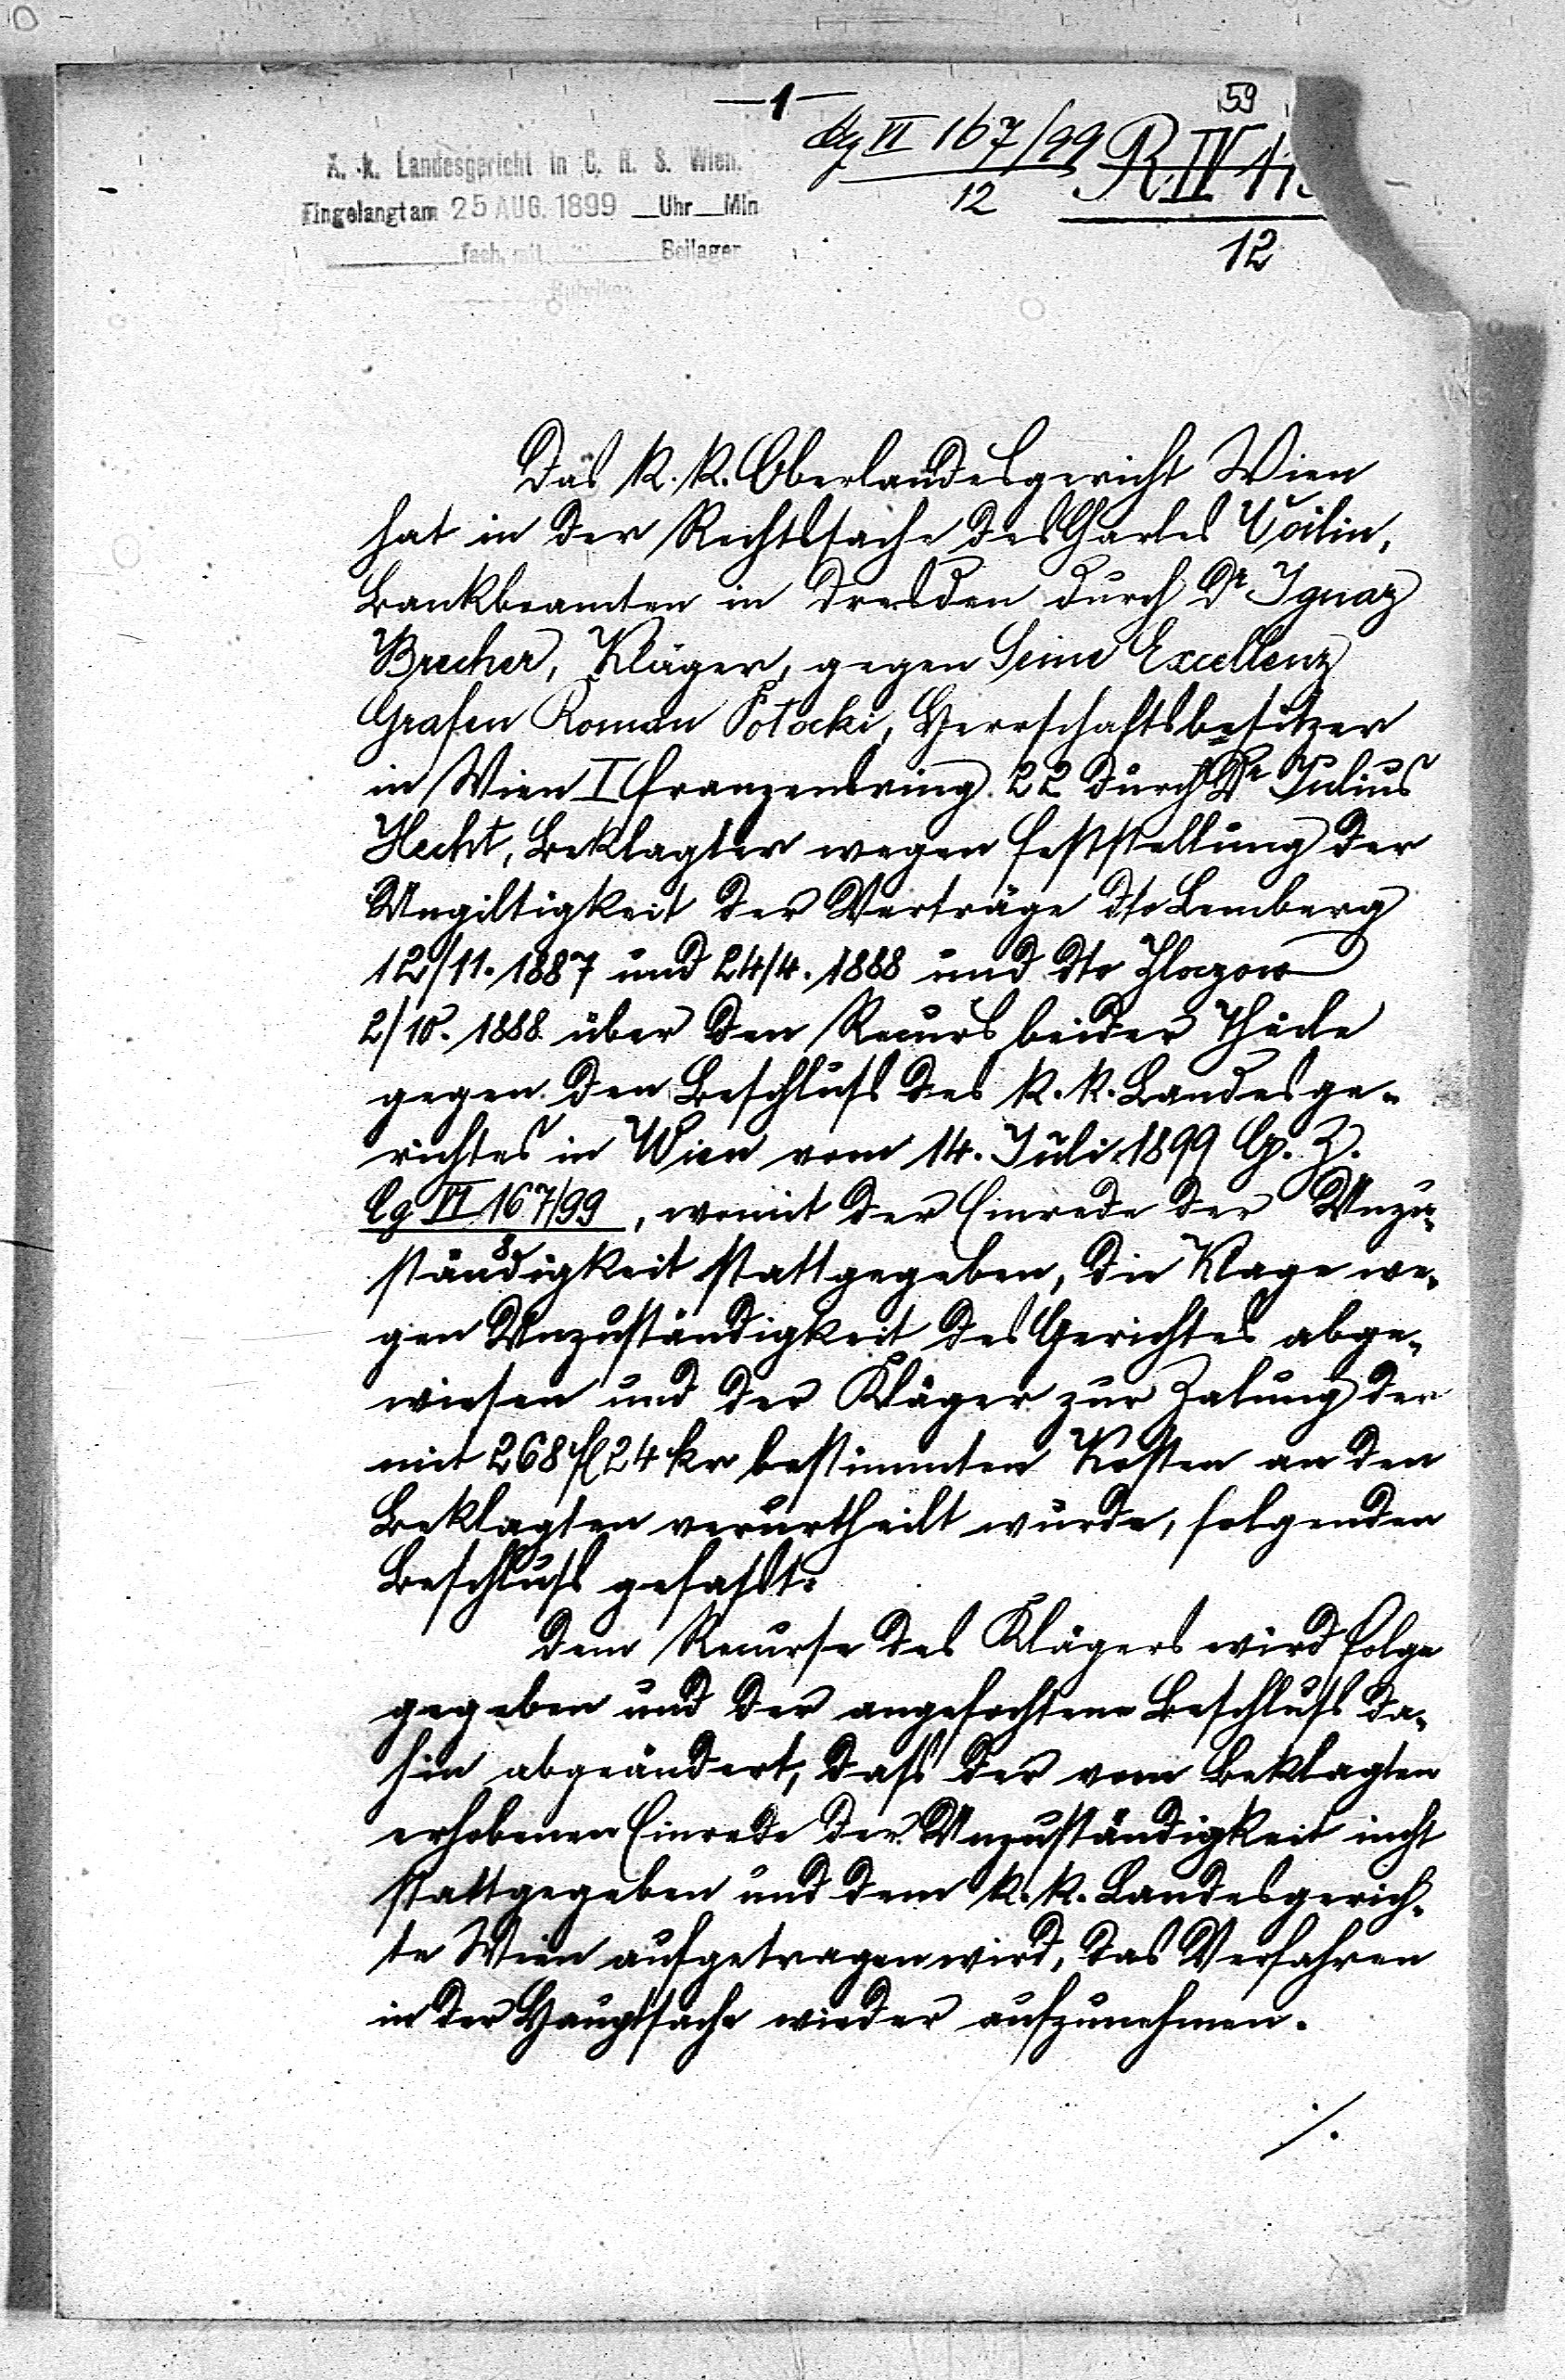 —1—
59
Cg VI 167/99
12
R. IV
12
K. k. Landesgericht in C. R. S. Wien.
Eingelangt am 25 AUG. 1899 __Uhr__Min
fach, mit Beilagen
Rubriken
Das k. k. Oberlandesgericht Wien
hat in der Rechtssache des Charles Voilin,
Bankbeamten in Dresden durch Dr Ignaz
Brecher, Kläger, gegen Seine Excellenz
Grafen Roman Potocki, Herrschaftsbesitzer
in Wien I Franzensring 22 durch Dr Julius
Hecht, Beklagter wegen Feststellung der
Ungiltigkeit der Verträge dto Lemberg
12/11. 1887 und 24/4. 1888 und dto Zloczow
2/10. 1888 über den Recurs beider Theile
gegen den Beschluss des k. k. Landesge-
richtes in Wien vom 14. Juli 1899 G. Z.
Cg VI 167/99, womit der Einrede der Unzu-
8
ständigkeit stattgegeben, die Klage we-
gen Unzuständigkeit des Gerichtes abge-
wiesen und der Kläger zur Zalung der
mit 268 fl 24 kr bestimmten Kosten an den
Beklagten verurtheilt wurde, folgenden
Beschluss gefasst:
Dem Recurse des Klägers wird Folge
gegeben und der angefochtene Beschluss da-
hin abgeändert, dass der vom Beklagten
erhobenen Einrede der Unzuständigkeit nicht
stattgegeben und dem k. k. Landesgerich-
te Wien aufgetragen wird, das Verfahren
in der Hauptsache wieder aufzunehmen.
./.